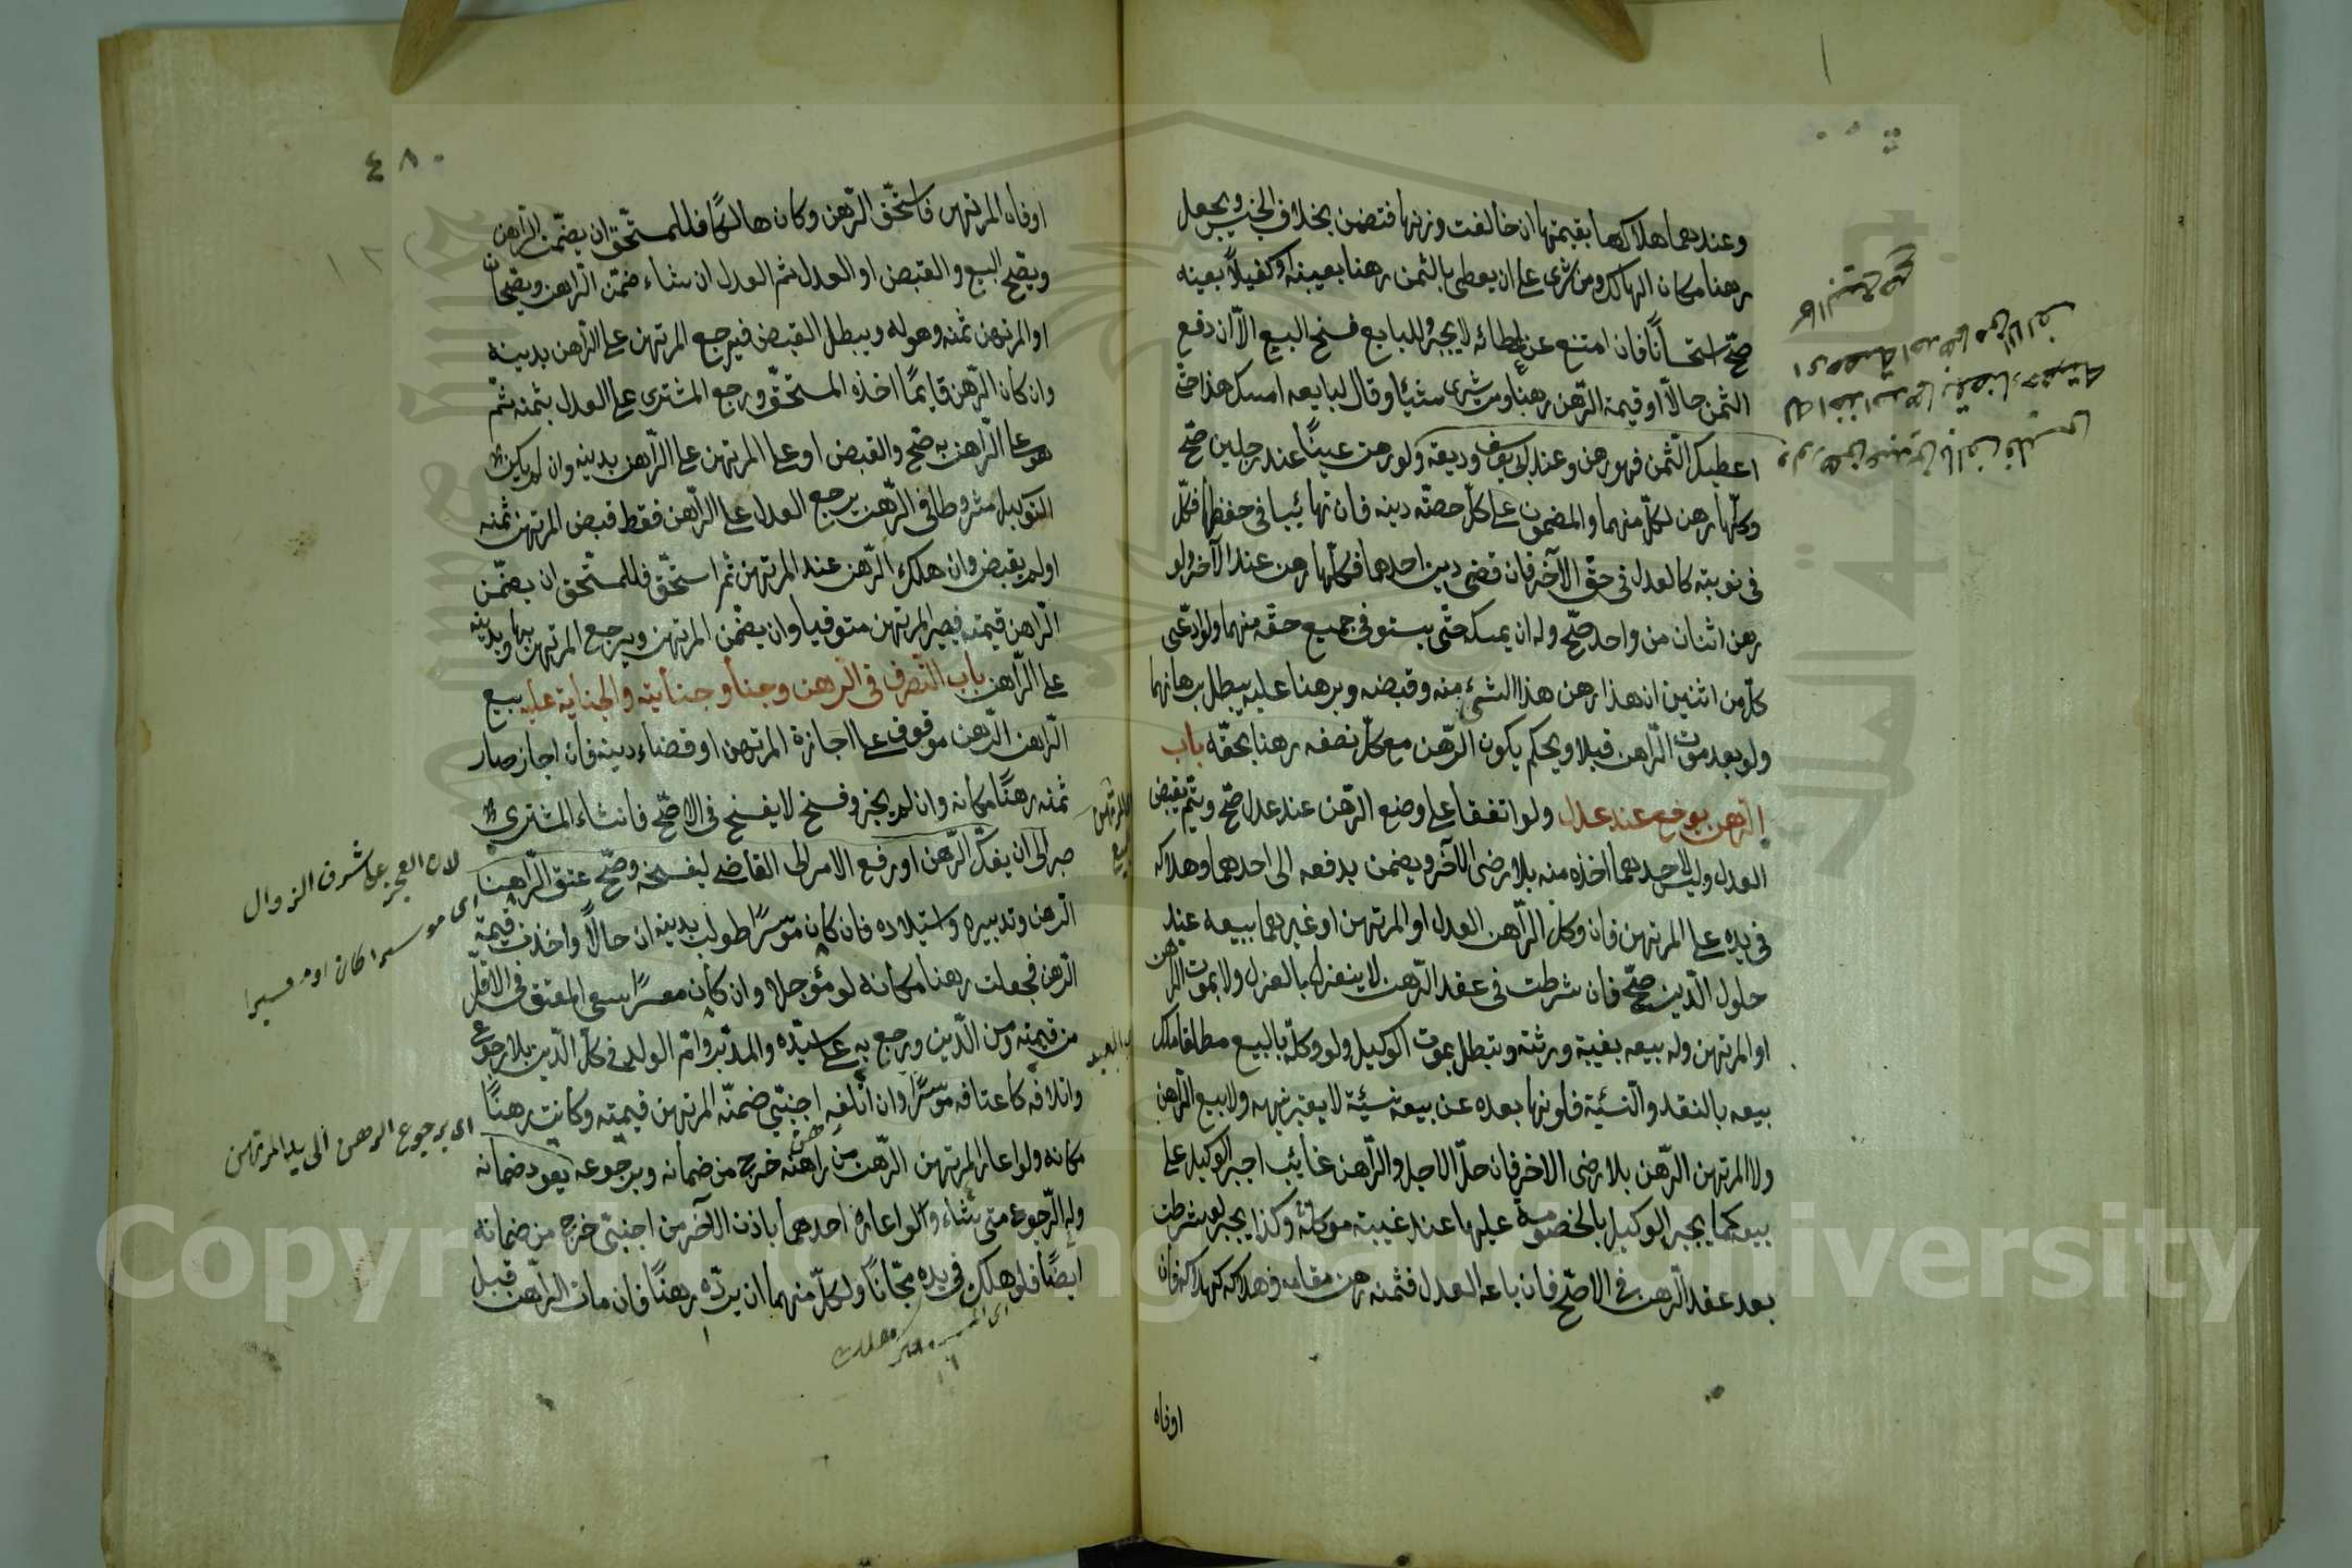 وعندهما هلاكها بقيمتها ان خالفت وزنها فتضمن بخلاف الجنس ويجعل
رهنا مكان الهالك ومن شرى على ان يعطى بالثمن رهنا بعينه او كفيلاً بعينه
صحّ استحسانًا فان امتنع عن اعطائه لا يجبر وللبايع فسخ البيع الاّ ان دفع
الثمن حالاً او قيمة الرّهن رهنا ومن شرى شيئا وقال لبايعه امسك هذا حتّى
اعطيك الثّمن فهو رهن وعند ابى يوسف وديعة ولو رهن عينًا عند رجلين صحّ
وكلّها رهن لكلّ منهما والمضمون على كلّ حصّة دينه فان تهايئا فى حفظها فكلّ
فى نوبته كالعدل فى حقّ الآخر فان قضى دين احدهما فكلّها رهن عند الآخر ولو
رهن اثنان من واحد صحّ وله ان يمسكه حتّى يستوفى جميع حقّه منهما ولو ادّعى
كلّ من اثنين ان هذا رهن هذا الشئ منه وقبضه وبرهنا عليه يبطل برهانهما
ولو بعد موت الرّاهن قبلا ويحكم يكون الرّهن مع كلّ نصفه رهنا بحقّه باب
الرّهن يوضع عند عدل ولو اتفقا على وضع الرّهن عند عدل صحّ ويتمّ بقبض
العدل وليس لاحدهما اخذه منه بلا رضى الآخر ويضمن بدفعه الى احدهما وهلاكه
فى يده على المرتهن فان وكل الرّاهن العدل او المرتهن او غيرهما ببيعه عند
حلول الدّين صحّ فان شرطت فى عقد الرّهن لا ينعزل بالعزل ولا بموت الرّاهن
او المرتهن وله بيعه بغيبة ورثته وتبطل بموت الوكيل ولو وكلّه بالبيع مطلقا ملك
بيعه بالنقد والنسئية فلو نهاه بعده عن بيعه نسئية لا يعتبر نهيه ولا يبيع الرّاهن
ولا المرتهن الرّهن بلا رضى الاخر فان حلّ الاجل والرّاهن غايب اجبر الوكيل على
بيعه كما يجبر الوكيل بالخصومة عليها عند غيبة موكله وكذا يجبر لو شرطت
بعد عقد الرّهن فى الاصّح فان باعه العدل فثمنه رهن مقامه وهلاكه كهلاكه فان
اوفاه
٤٨٠
اوفاه المرتهن فاستحّق الرّهن وكان هالكًا فللمستحّق ان يضمّن الرّاهن
ويصّح البيع والقبض او العدل ثم العدل ان شاء ضمّن الرّاهن ويصّحان
او المرتهن ثمنه وهو له ويبطل القبض فيرجع المرتهن على الرّاهن بدينه
وان كان الرّهن قايمًا اخذه المستحّق ورجع المشترى على العدل بثمنه ثمّ
هو على الرّاهن به وصّح القبض او على المرتهن ثم المرتهن على الرّاهن بدينه وان لم يكن
التوكيل مشروطا فى الرّهن يرجع العدل على الرّاهن فقط قبض المرتهن ثمنه
اولم يقبض وان هلك الرّهن عند المرتهن ثمّ استحّق فللمستحّق ان يضمّن
الرّاهن قيمته فيصير المرتهن مستوفيا وان يضمّن المرتهن ويرجع المرتهن بها وبدينه
على الرّاهن باب التّصرف فى الرّهن وجنايته والجناية عليه بيع
الرّاهن الرّهن موقوف على اجازة المرتهن او قضاء دينه فان اجاز صار
ثمنه رهنًا مكانه وان لم يجز وفسخ لا يفسخ فى الاصّح فان شاء المشترى
صبر الى ان يفكّ الرّهن او رفع الامر الى القاضى ليفسخه وصّح عتق الرّاهن
الرّهن وتدبيره واستيلاده فان كان موسرًا طولب بدينه ان حالاً واخذت قيمة
الرّهن فجعلت رهنا مكانه لو مؤجلا وان كان معسرًا سعى المعتق فى الاقلّ
من قيمته ومن الدّين ويرجع به على سيّده والمدّبر وامّ الولد فى كلّ الدّين بلا رجوع
واتلافه كاعتاقه موسرًا وان اتلفه اجنبّى ضمّنه المرتهن قيمته وكانت رهنًا
مكانه ولو اعار المرتهن الرّهن من راهنه خرج من ضمانه وبرجوعه يعود ضمانه
وله الرّجوع متى شاء ولو اعاره احدهما باذن الآخر من اجنبّى خرج من ضمانه
ايضًا فلو هلك فى يده هلك مجّانًا ولكلّ منهما ان يردّه رهنًا فان مات الرّاهن قبل
لان العجز على شرف الزوال
اى موسرا كان او معسرا
اى برجوع الرهن الى يد المرتهن
Copyright © King Saud University